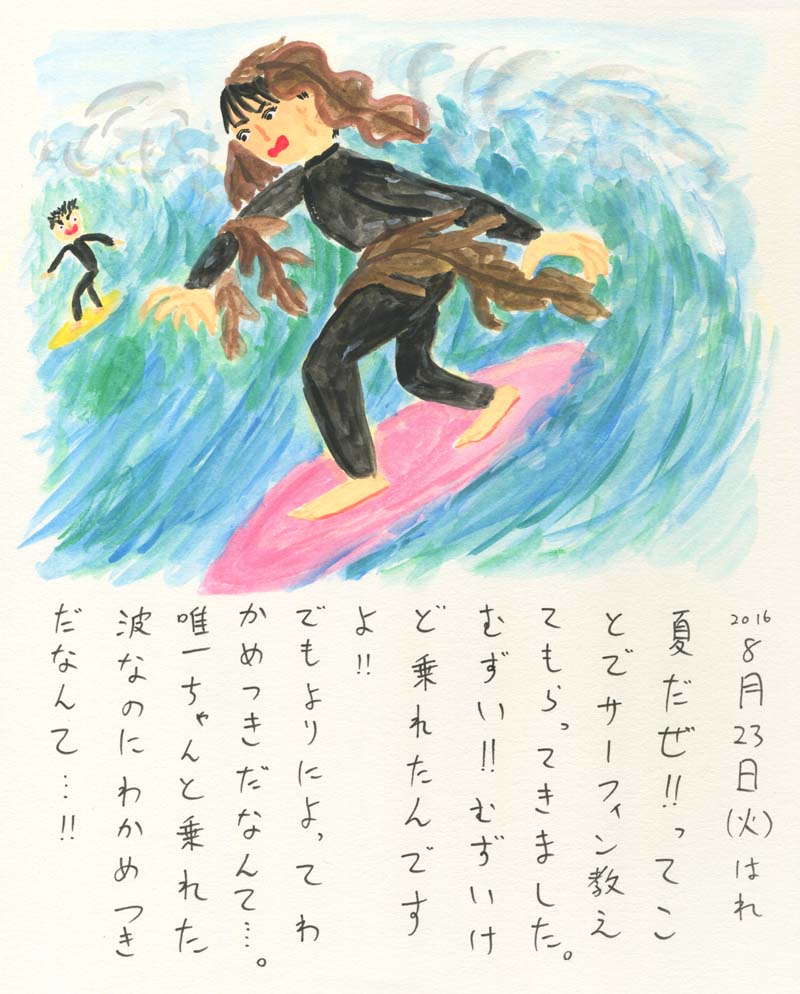 2016 8月23日(火)はれ
夏だぜ!!ってこ
とでサーフィン教え
てもらってきました。
むずい!!むずいけ
ど乗れたんです
よ!!
でもよりによってわ
かめつきだなんて…。
唯一ちゃんと乗れた
波なのにわかめつき
だなんて…!!